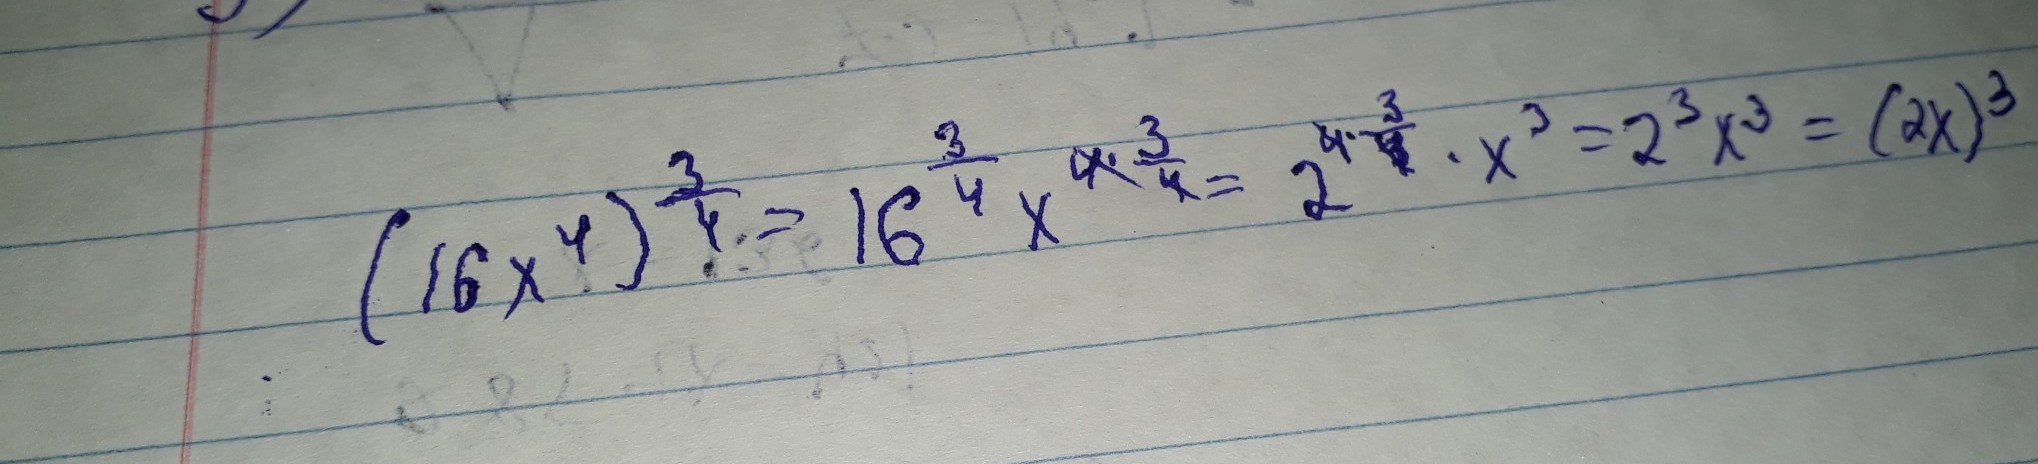 (16x⁴)^(3/4) = 16^(3/4) x^(4·3/4) = 2^(4·3/4) · x³ = 2³x³ = (2x)³